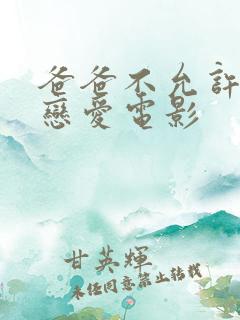 爸爸不允許
戀愛電影
甘英輝
未任同意禁止轉載